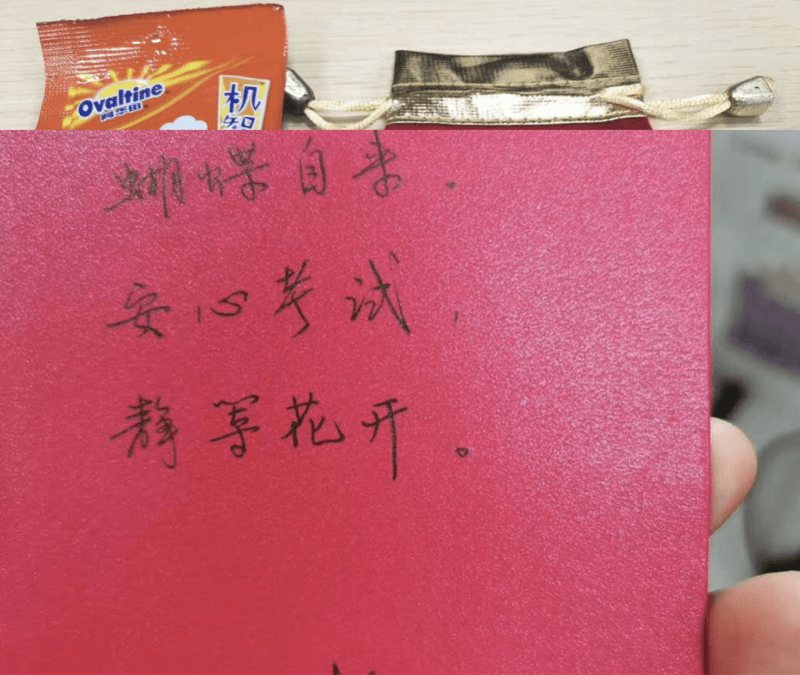 Ovaltine
阿华田
机智
蝴蝶自来.
安心考试,
静等花开。